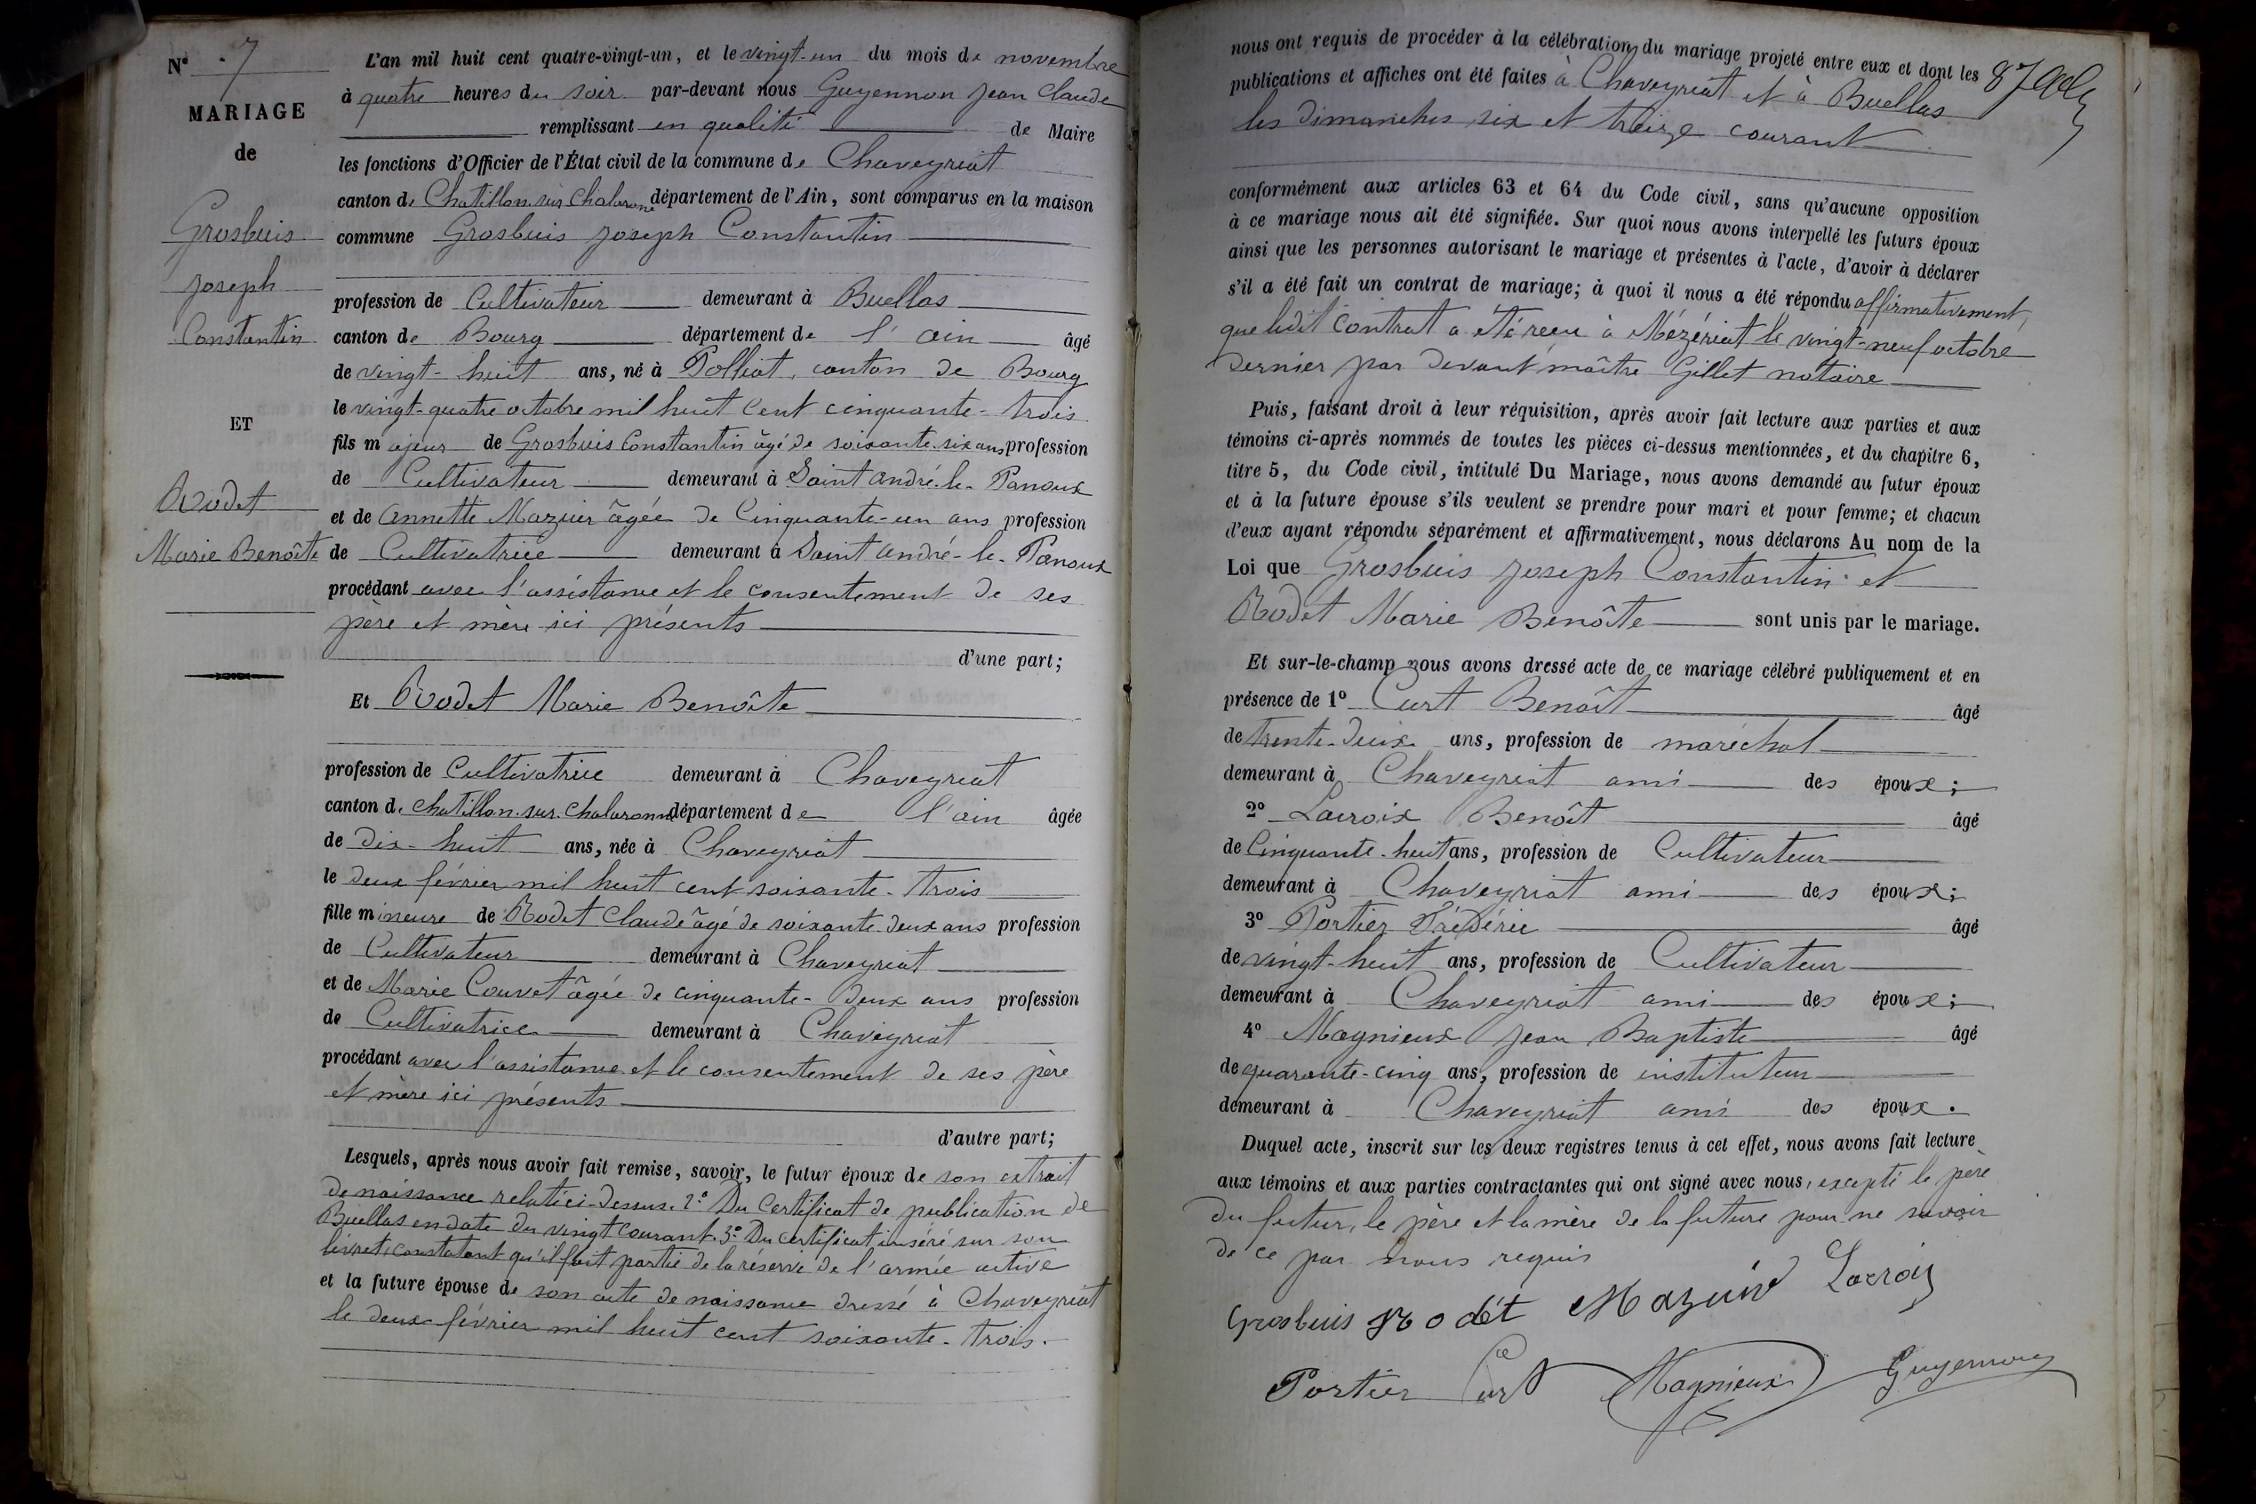 N° 7
MARIAGE
de
Grosbuis
Joseph
Constantin
ET
Rodet
Marie Benoîte
L'an mil huit cent quatre-vingt-un, et le vingt-un du mois de novembre
à quatre heures du soir par-devant nous Guyennon Jean Claude
remplissant en qualité de Maire
les fonctions d'Officier de l'État civil de la commune de Chaveyriat
canton de Chatillon sur Chalaronne département de l'Ain, sont comparus en la maison
commune Grosbuis Joseph Constantin
profession de Cultivateur demeurant à Buellas
canton de Bourg département de l'ain âgé
de vingt-huit ans, né à Polliat, canton de Bourg
le vingt-quatre octobre mil huit cent cinquante-trois
fils majeur de Grosbuis Constantin âgé de soixante-six ans profession
de Cultivateur demeurant à Saint André-le-Panoux
et de Annette Mazuir âgée de Cinquante-un ans profession
de Cultivatrice demeurant à Saint André-le-Panoux
procédant avec l'assistance et le consentement de ses
père et mère ici présents
d'une part;
Et Rodet Marie Benoîte
profession de Cultivatrice demeurant à Chaveyriat
canton de Chatillon-sur-Chalaronne département de l'ain âgée
de Dix-huit ans, née à Chaveyriat
le deux février mil huit cent soixante-trois
fille mineure de Rodet Claude âgé de soixante-deux ans profession
de Cultivateur demeurant à Chaveyriat
et de Marie Couvet âgée de cinquante-deux ans profession
de Cultivatrice demeurant à Chaveyriat
procédant avec l'assistance et le consentement de ses père
et mère ici présents
d'autre part;
Lesquels, après nous avoir fait remise, savoir, le futur époux de son extrait
de naissance relaté ci-dessus. 2° Du Certificat de publication de
Buellas en date du vingt courant. 3° Du certificat inséré sur son
livret, constatant qu'il fait partie de la réserve de l'armée active
et la future épouse de son acte de naissance dressé à Chaveyriat
le deux février mil huit cent soixante-trois.
nous ont requis de procéder à la célébration du mariage projeté entre eux et dont les
publications et affiches ont été faites à Chaveyriat et à Buellas
les dimanches six et treize courant
conformément aux articles 63 et 64 du Code civil, sans qu'aucune opposition
à ce mariage nous ait été signifiée. Sur quoi nous avons interpellé les futurs époux
ainsi que les personnes autorisant le mariage et présentes à l'acte, d'avoir à déclarer
s'il a été fait un contrat de mariage; à quoi il nous a été répondu affirmativement,
que ledit contrat a été reçu à Mézériat le vingt-neuf octobre
dernier par devant maître Gillet notaire
Puis, faisant droit à leur réquisition, après avoir fait lecture aux parties et aux
témoins ci-après nommés de toutes les pièces ci-dessus mentionnées, et du chapitre 6,
titre 5, du Code civil, intitulé Du Mariage, nous avons demandé au futur époux
et à la future épouse s'ils veulent se prendre pour mari et pour femme; et chacun
d'eux ayant répondu séparément et affirmativement, nous déclarons Au nom de la
Loi que Grosbuis Joseph Constantin et
Rodet Marie Benoîte sont unis par le mariage.
Et sur-le-champ nous avons dressé acte de ce mariage célébré publiquement et en
présence de 1° Curt Benoît âgé
de trente-deux ans, profession de maréchal
demeurant à Chaveyriat ami des époux;
2° Lacroix Benoît âgé
de Cinquante-huit ans, profession de Cultivateur
demeurant à Chaveyriat ami des époux;
3° Portier Frédéric âgé
de vingt-huit ans, profession de Cultivateur
demeurant à Chaveyriat ami des époux;
4° Magnieux Jean Baptiste âgé
de quarante-cinq ans, profession de instituteur
demeurant à Chaveyriat ami des époux.
Duquel acte, inscrit sur les deux registres tenus à cet effet, nous avons fait lecture
aux témoins et aux parties contractantes qui ont signé avec nous, excepté le père
du futur, le père et la mère de la future pour ne savoir
de ce par nous requis
Grosbuis Rodet Mazuir Lacroix
Portier Curt Magnieux Guyennon